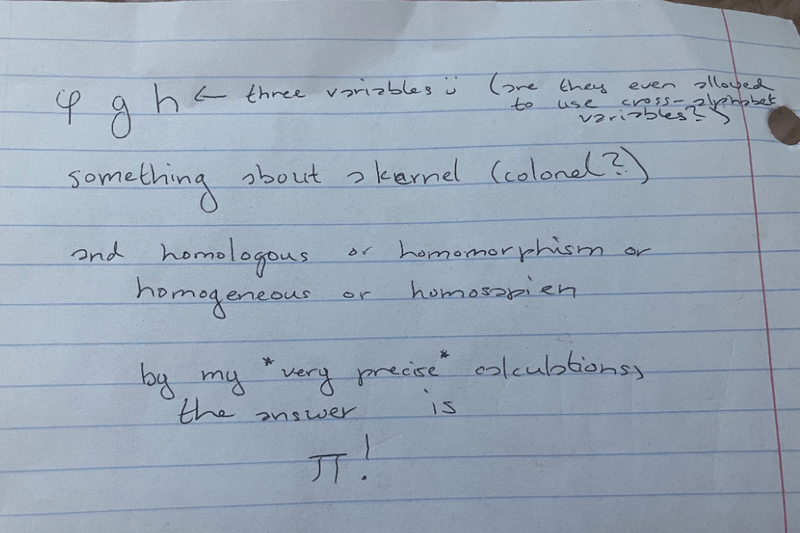 φ g h ← three variables ü (are they even allowed
to use cross-alphabet
variables?)
something about a kernel (colonel?)
and homologous or homomorphism or
homogeneous or homosapien
by my *very precise* calculations,
the answer is
π!